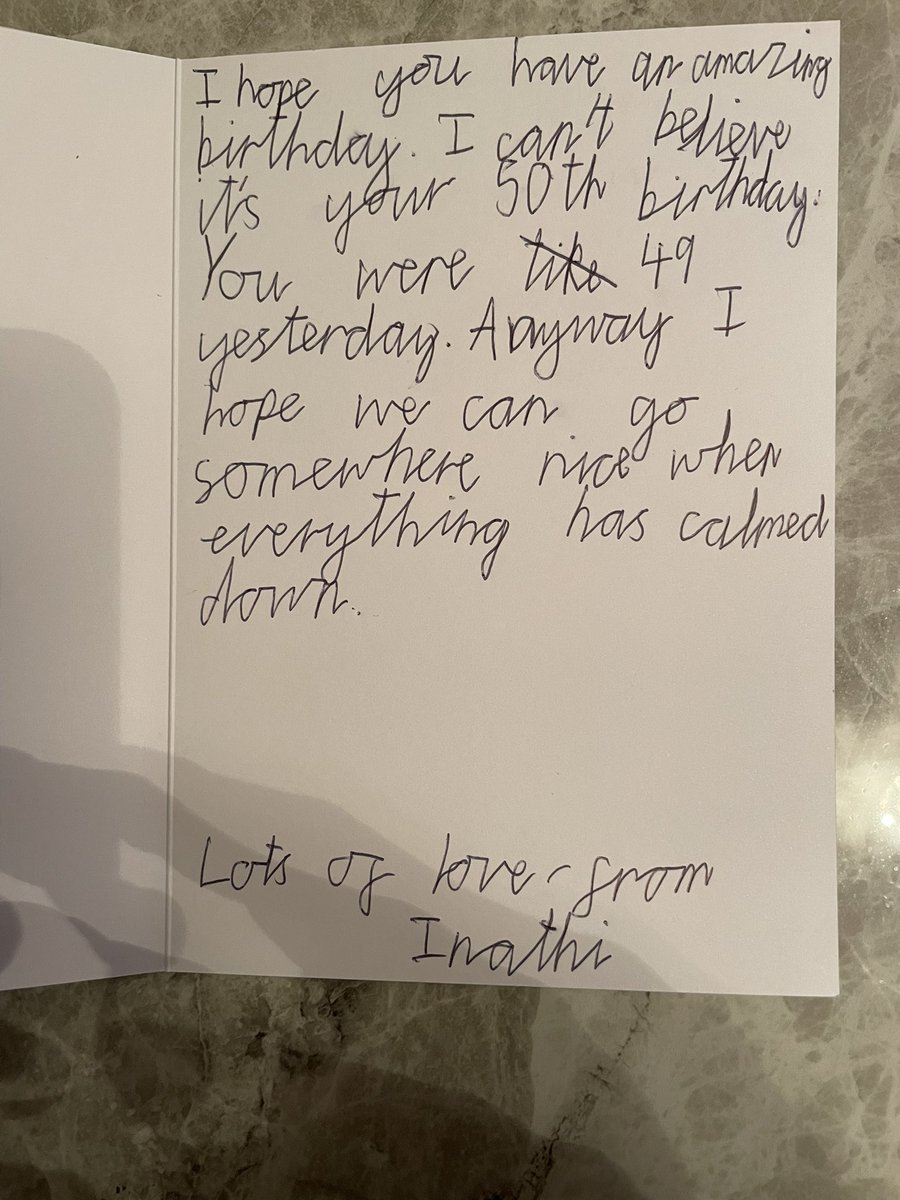 I hope you have an amazing
birthday. I can't believe
it's your 50th birthday.
You were like 49
yesterday. Anyway I
hope we can go
somewhere nice when
everything has calmed
down.
Lots of love - from
Inathi